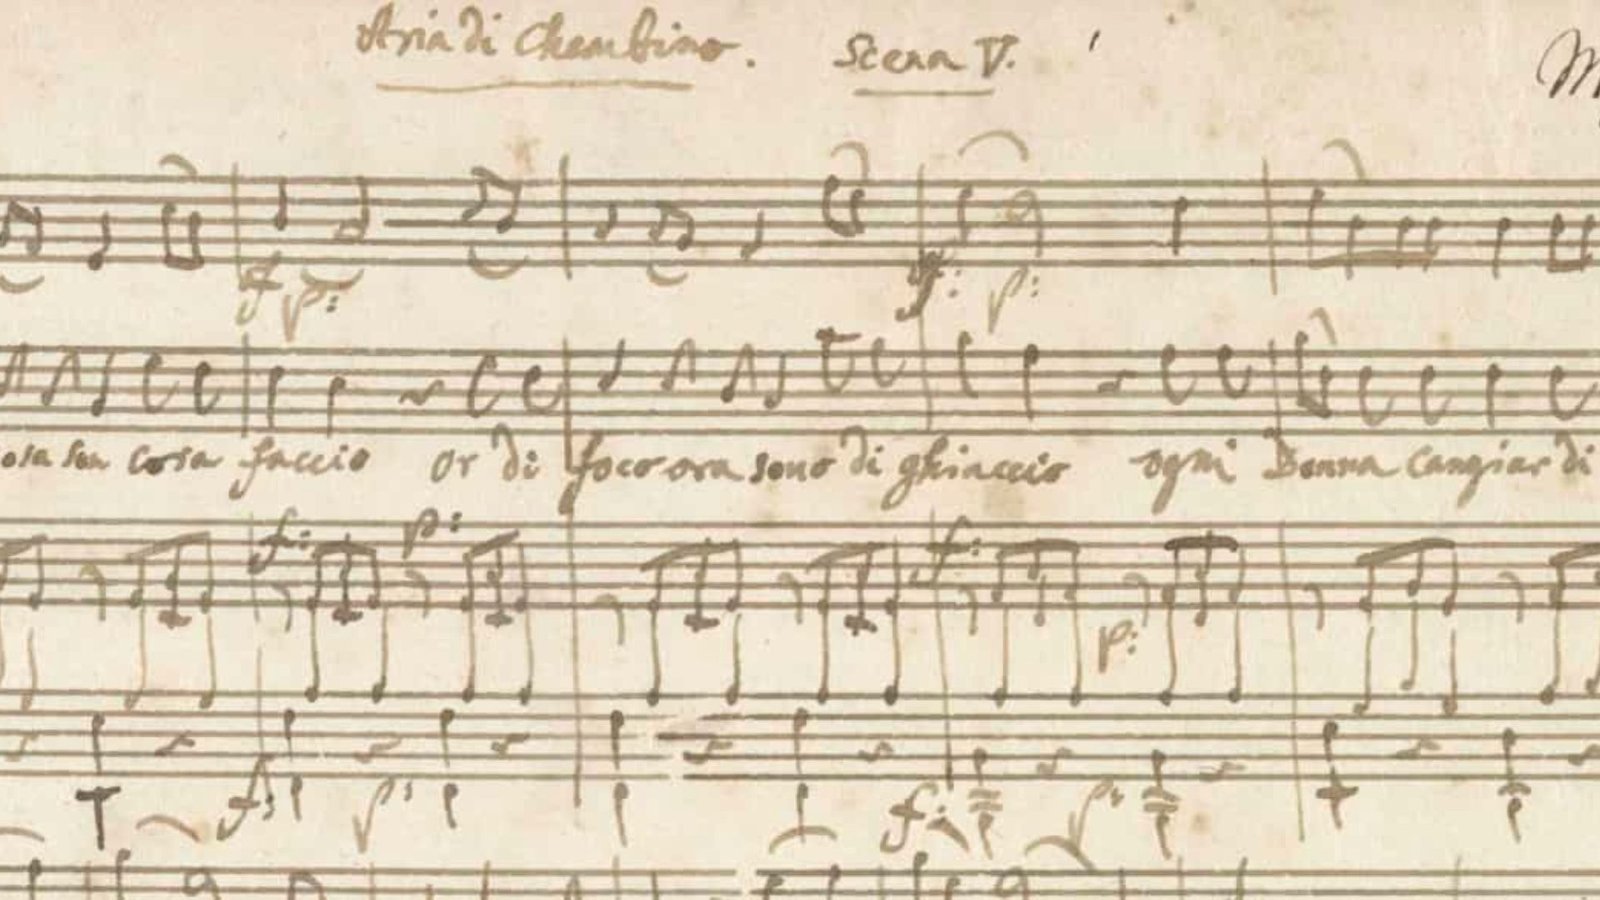 Aria di Cherubino. Scena V.
f p:
f: p:
cosa son cosa faccio or di foco ora sono di ghiaccio ogni Donna cangiar di
f: p: f:
p:
f: p: f: p: